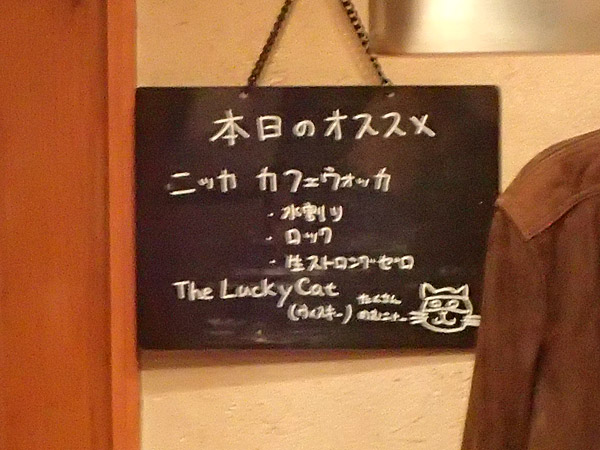 本日のオススメ
ニッカ カフェウォッカ
・水割り
・ロック
・生ストロングゼロ
The Lucky Cat たくさん
(ウィスキー) のむニャー